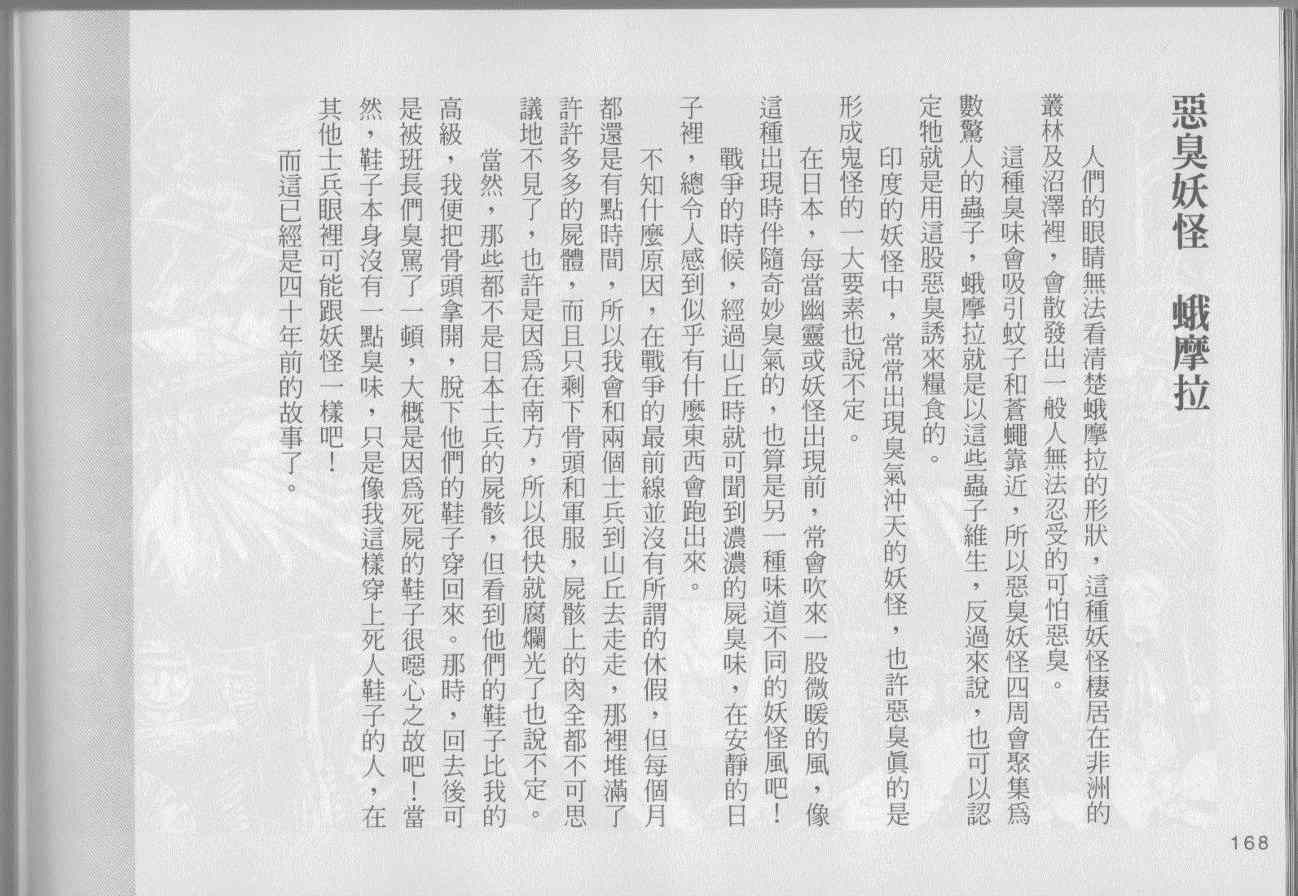 惡臭妖怪　蛾摩拉
人們的眼睛無法看清楚蛾摩拉的形狀，這種妖怪棲居在非洲的
叢林及沼澤裡，會散發出一般人無法忍受的可怕惡臭。
這種臭味會吸引蚊子和蒼蠅靠近，所以惡臭妖怪四周會聚集為
數驚人的蟲子，蛾摩拉就是以這些蟲子維生，反過來說，也可以認
定牠就是用這股惡臭誘來糧食的。
印度的妖怪中，常常出現臭氣沖天的妖怪，也許惡臭眞的是
形成鬼怪的一大要素也說不定。
在日本，每當幽靈或妖怪出現前，常會吹來一股微暖的風，像
這種出現時伴隨奇妙臭氣的，也算是另一種味道不同的妖怪風吧！
戰爭的時候，經過山丘時就可聞到濃濃的屍臭味，在安靜的日
子裡，總令人感到似乎有什麼東西會跑出來。
不知什麼原因，在戰爭的最前線並沒有所謂的休假，但每個月
都還是有點時間，所以我會和兩個士兵到山丘去走走，那裡堆滿了
許許多多的屍體，而且只剩下骨頭和軍服，屍骸上的肉全都不可思
議地不見了，也許是因爲在南方，所以很快就腐爛光了也說不定。
當然，那些都不是日本士兵的屍骸，但看到他們的鞋子比我的
高級，我便把骨頭拿開，脫下他們的鞋子穿回來。那時，回去後可
是被班長們臭罵了一頓，大概是因爲死屍的鞋子很噁心之故吧！當
然，鞋子本身沒有一點臭味，只是像我這樣穿上死人鞋子的人，在
其他士兵眼裡可能跟妖怪一樣吧！
而這已經是四十年前的故事了。
168